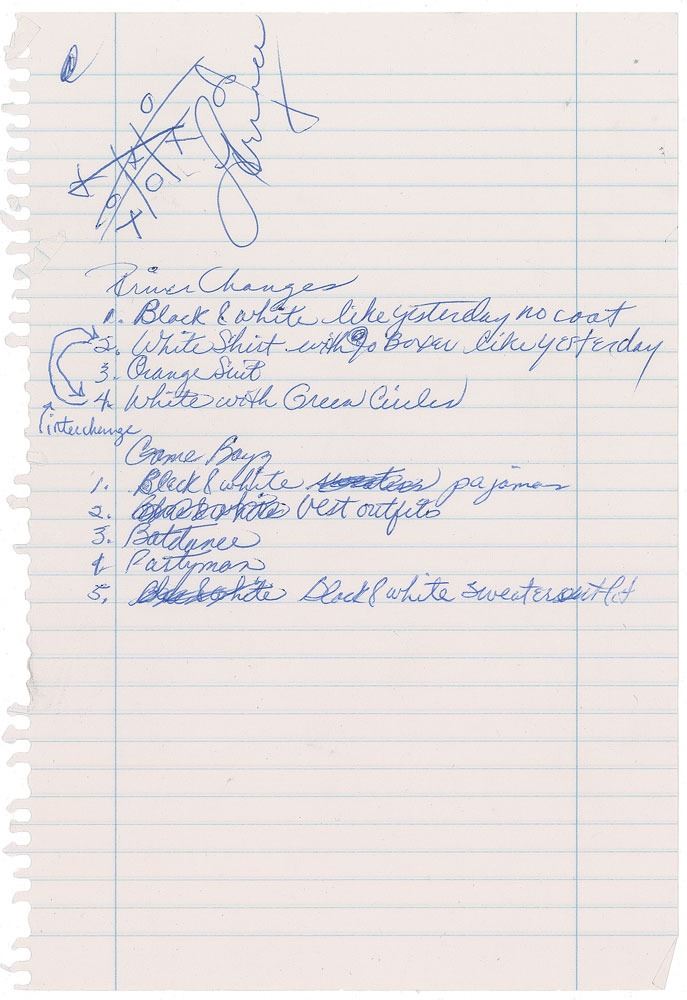 Prince Changes
1. Black & white like yesterday no coat
2. White Shirt with Boxer like yesterday
3. Orange Suit
4. White with Green Circles
interchange
Game Boyz
1. Black & white pajamas
2. Black & white Vest outfits
3. Batdance
4. Partyman
5. Black & white Black & white sweater outfit